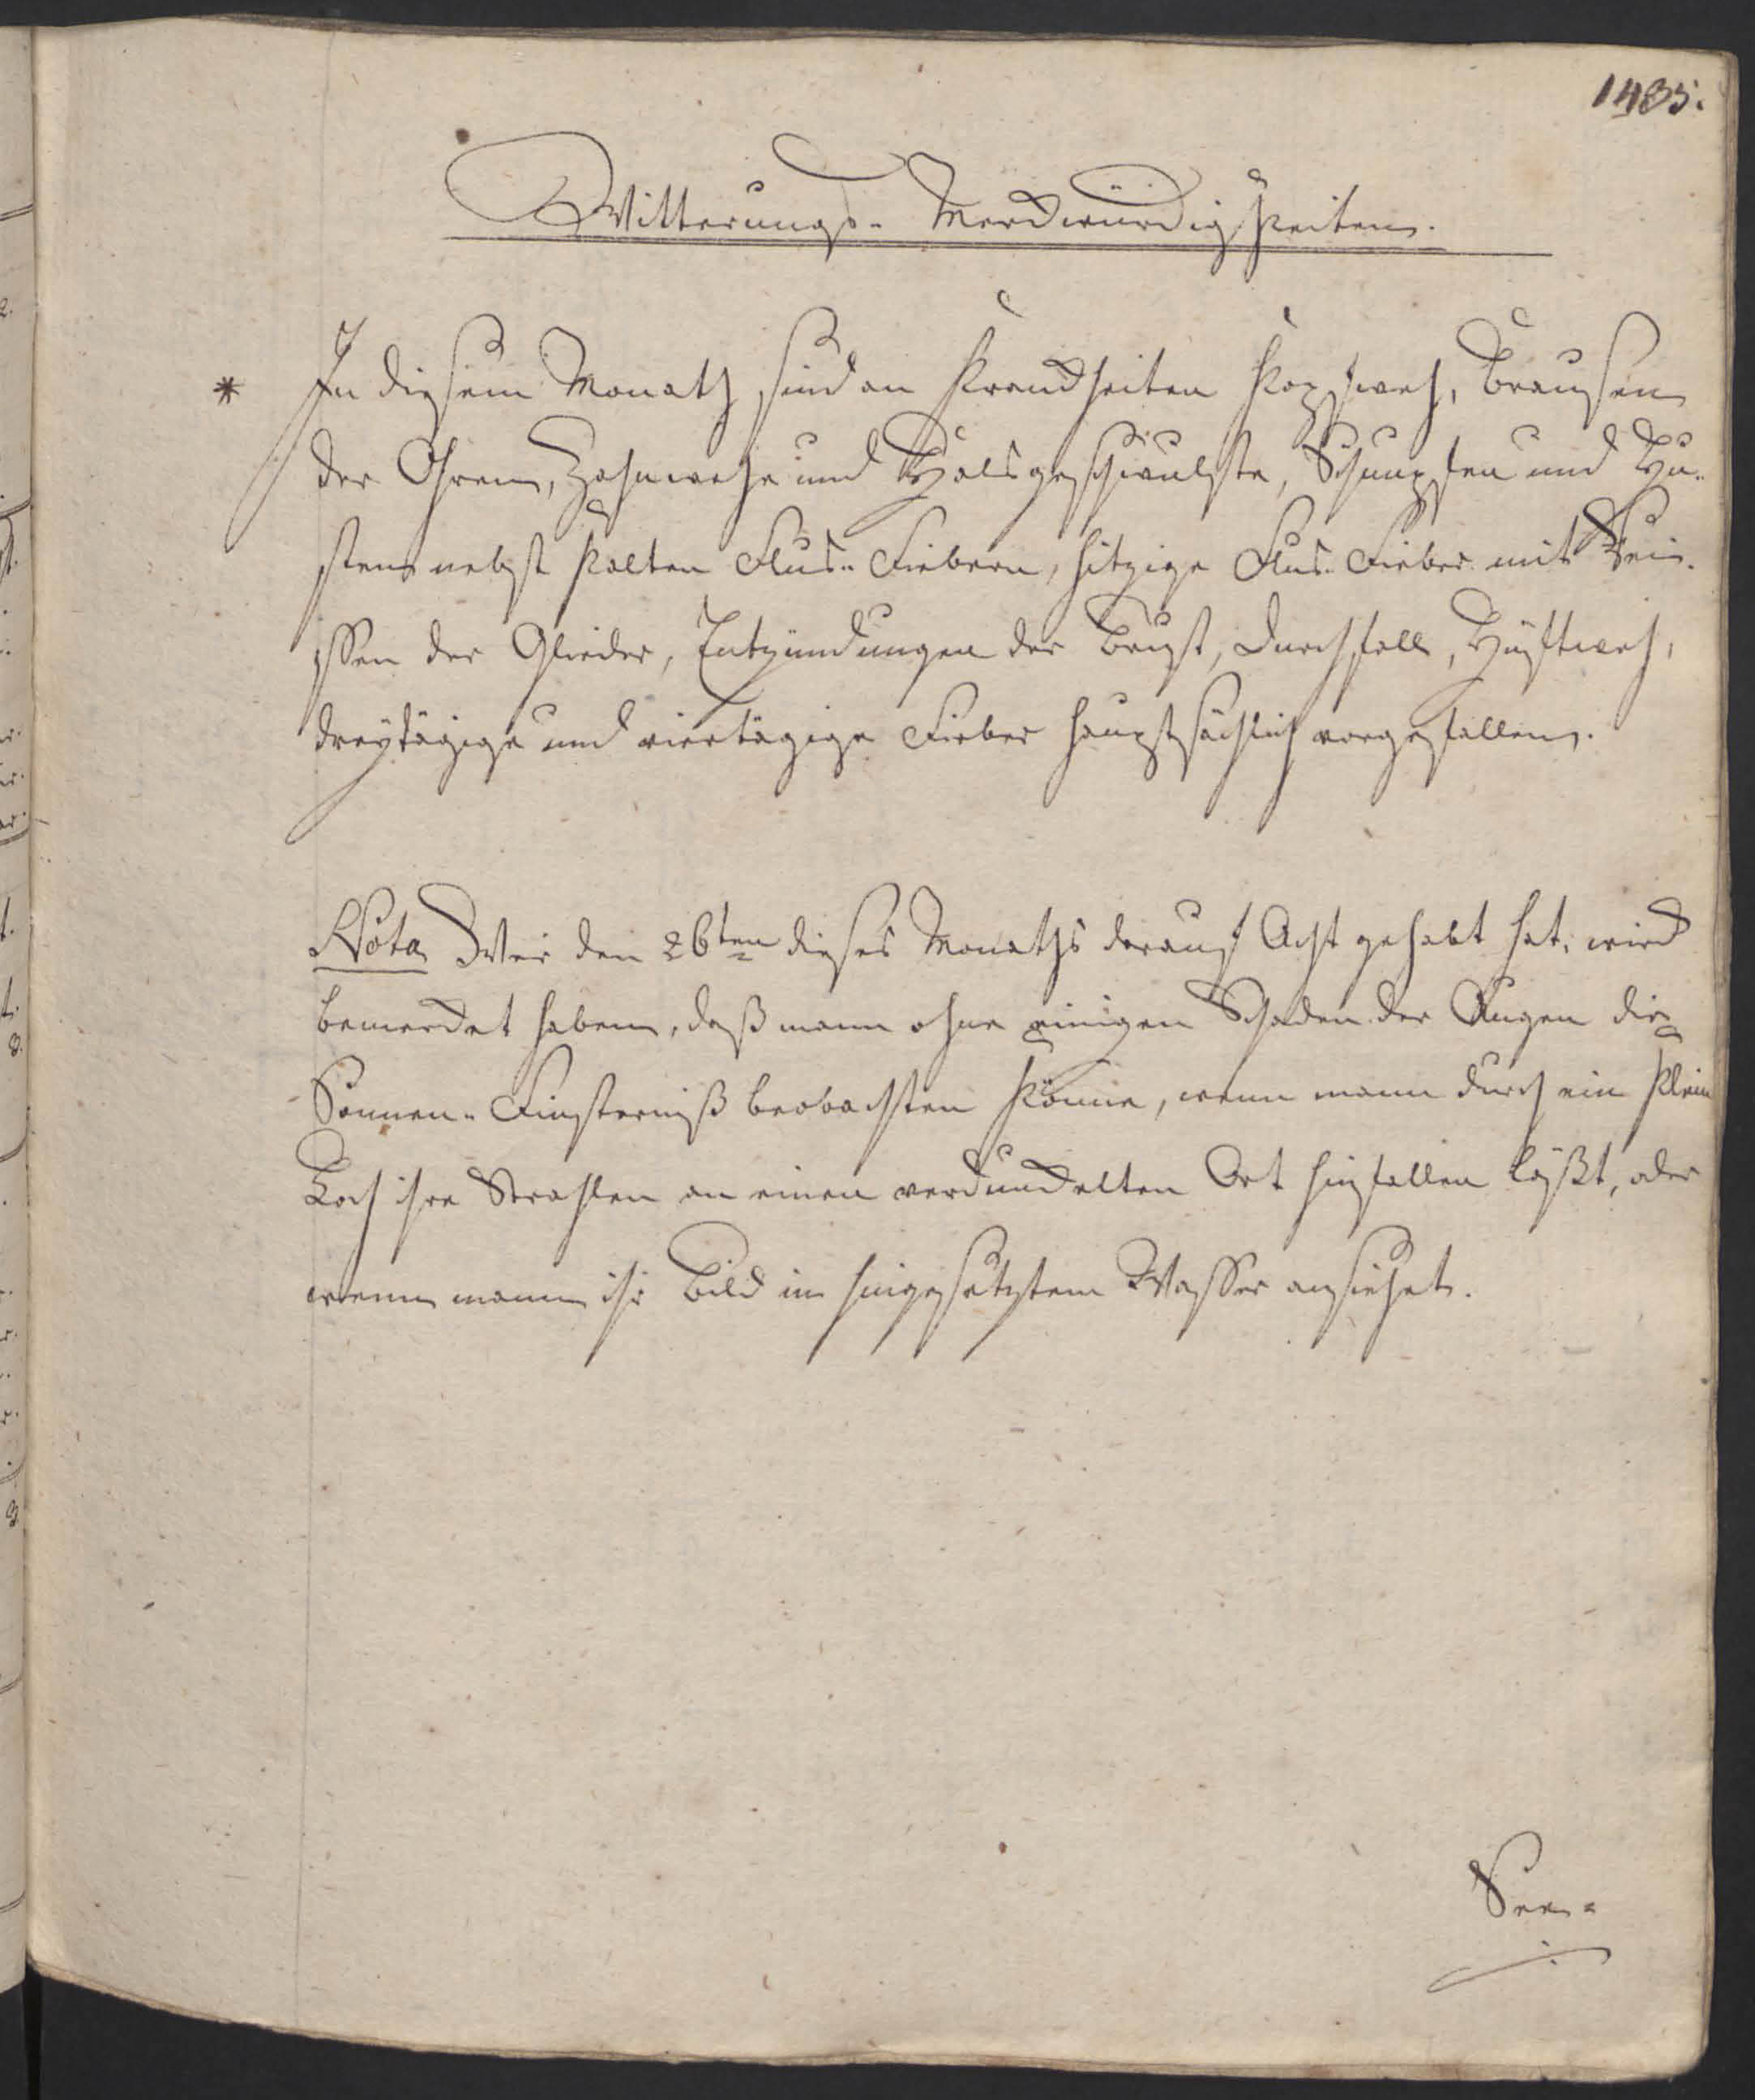 1485.
Witterungs- Merckwürdigkeiten.
* In diesem Monath sind an Kranckheiten Kopfweh, Brausen
der Ohren, Zahnwehe und Halsgeschwulste, Schnupfen und Hu-
sten nebst kalten Flus- Fiebern, hitzige Flus- Fieber mit Rei-
ssen der Glieder, Entzündungen der Brust, Durchfall, Hüftweh,
dreytägige und viertägige Fieber hauptsächlich vorgefallen.
Nota Wer den 26ten dieses Monaths darauf Acht gehabt hat, wird
bemercket haben, daß mann ohne einigen Schaden der Augen die
Sonnen- Finsterniß beobachten könne, wenn mann durch ein klein
Loch ihre Strahlen an einen verdunckelten Ort hinfallen läßt, oder
wenn mann ihr Bild in hingesetztem Wasser ansiehet.
See-